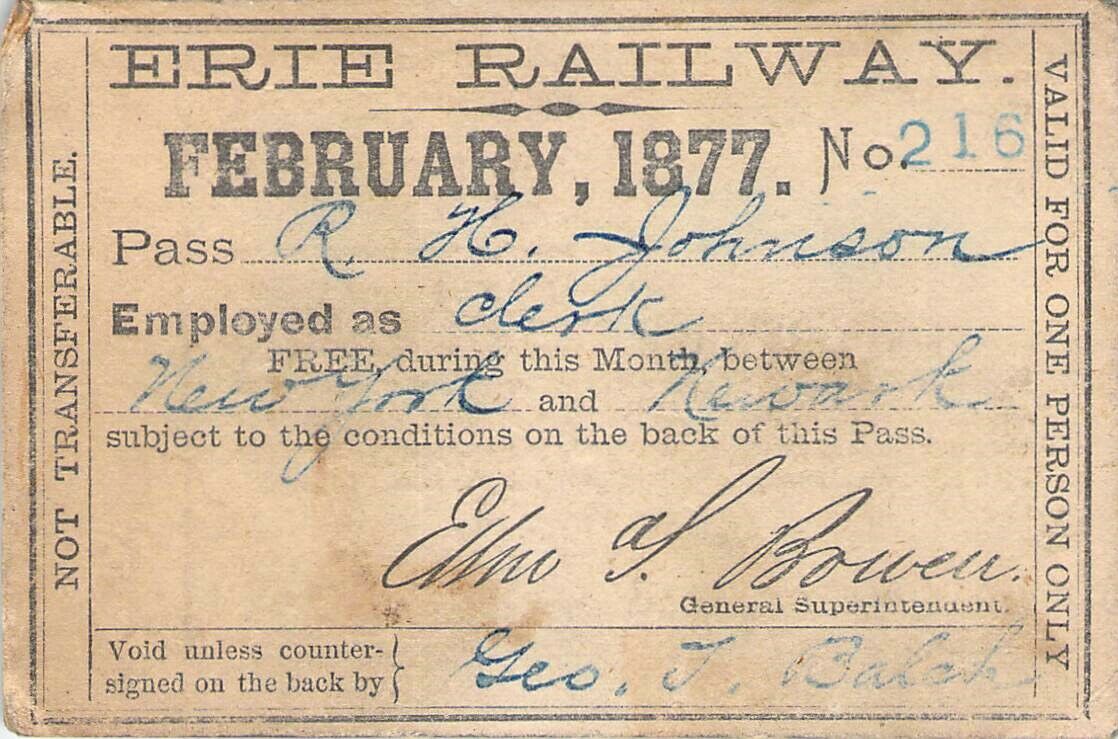 ERIE RAILWAY.
FEBRUARY, 1877. No. 216
Pass R. H. Johnson
Employed as clerk
FREE, during this Month, between
New York and Newark
subject to the conditions on the back of this Pass.
S. Bowen.
General Superintendent.
Void unless counter-
signed on the back by
Geo. T. Balch
NOT TRANSFERABLE.
VALID FOR ONE PERSON ONLY